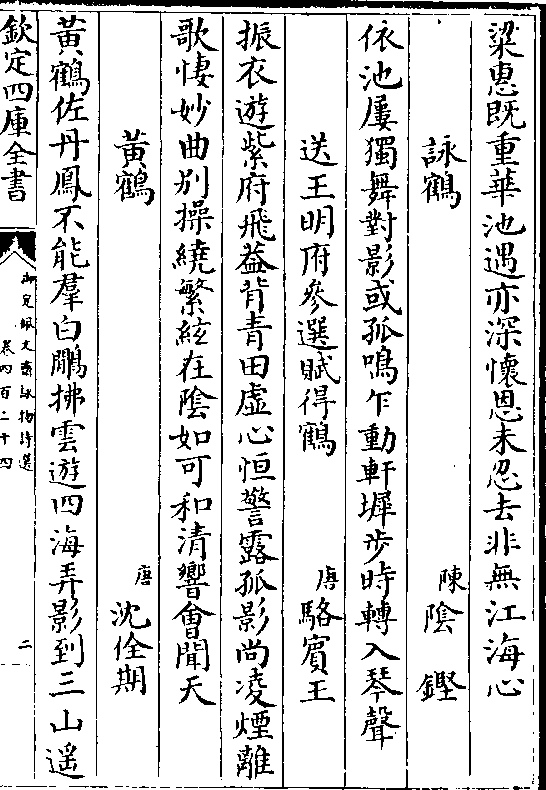 梁惠既重華池遇亦深懷恩未忍去非無江海心
詠鶴 陳 陰鏗
依池屢獨舞對影或孤鳴乍動軒墀步時轉入琴聲
送王明府參選賦得鶴 唐 駱賓王
振衣遊紫府飛葢背青田虛心恒警露孤影尚凌煙離
歌悽妙曲别操繞繁絃在陰如可和清響會聞天
黄鶴 唐 沈佺期
黄鶴佐丹鳳不能羣白鷴拂雲遊四海弄影到三山遥
欽定四庫全書
御定佩文齋詠物詩選
卷四百二十四
二